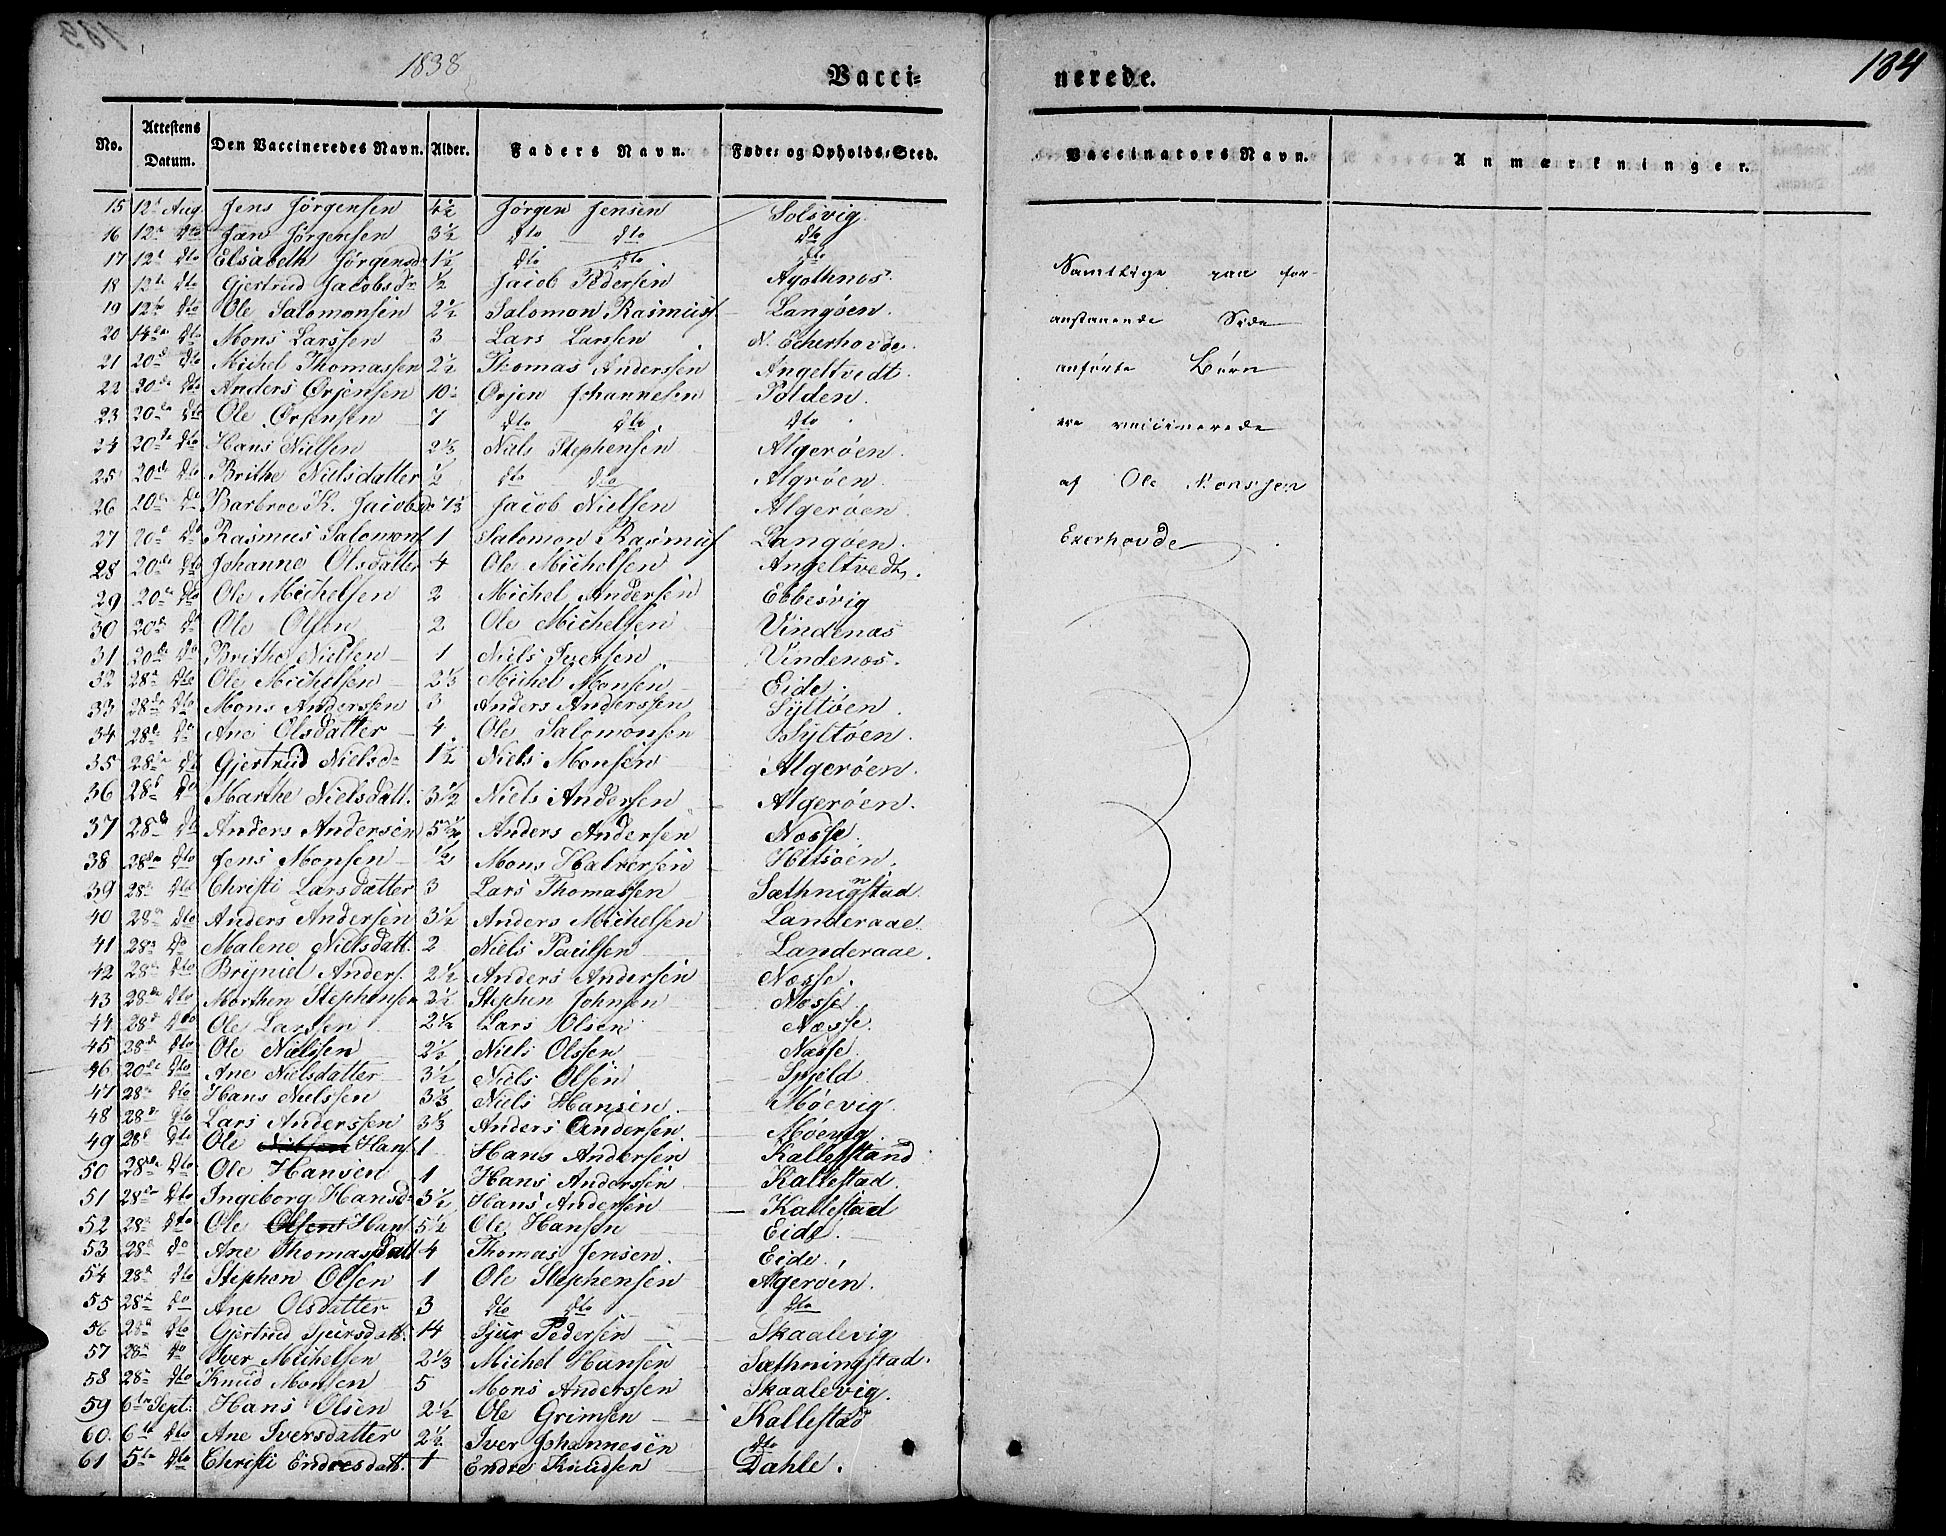 1838
Vacci=
nerede.
184
No. Attestens Datum. Den Vaccineredes Navn. Alder. Faders Navn. Føde= og Opholds=Sted.
Vaccinators Navn. Anmærkninger.
15 12te Aug. Jens Jørgensen 4½ Jørgen Jensen Solsvig
16 12te dto Jørgensen 3½ dto dto dto
17 12te dto Elsabeth Jørgensd. 1½ dto dto dto
18 12te dto Gjertrud Jacobsdr ½ Jacob Pedersen Agothnes
19 12te dto Ole Salomonsen 2½ Salomon Rasmuss Langøen.
20 14de dto Mons Larssen 3 Lars Larssen N. Echerhovde.
21 20de dto Michel Thomassen 2½ Thomas Anderssen Angeltvedt
22 20de dto Anders Ørjensen 10 Ørjen Johannesen Polden.
23 20de dto Ole Ørjensen 7 dto dto dto
24 20de dto Hans Nielsen 2⅓ Niels Stephensen Algerøen.
25 20de dto Brithe Nielsdatter ½ dto dto Algrøen.
26 20de do Barbroe K. Jacobsdr Jacob Nielsen Algerøen.
27 20de do Rasmus Salomons 1 Salomon Rasmuss Langøen.
28 20de dto Johanne Olsdatter 4 Ole Michelsen Angeltvedt.
29 20de dto Ole Michelsen 2 Michel Andersen Ebbesvig
30 20de do Ole Olsen 2 Ole Michelsen Vindenæs
31 20de do Brithe Nielsen 1 Niels Iversen Vindenæs.
32 28de dto Ole Michelsen 2⅓ Michel Monsen Eide.
33 28de dto Mons Anderssen 3 Anders Anderssen Syltøen.
34 28de do Ane Olsdatter 4 Ole Salomonsen Syltøen.
35 28de do Gjertrud Nielsdr 1½ Niels Monsen Algerøen.
36 28de do Marthe Nielsdatt. 3½ Niels Andersen Algerøen.
37 28de do Anders Andersen 5½ Anders Andersen Næsse.
38 28de dto Jens Monsen ½ Mons Halversen
39 28de dto Christi Larsdatter 3 Lars Thomassen Sæthningstad
40 28de dto Anders Andersen 3½ Anders Michelsen Landeraae.
41 28de do Malene Nielsdatt. 2 Niels Poulsen Landeraae.
42 28de dto Bryniel Anders. 2½ Anders Andersen Næsse.
43 28de dto Morthen Stephensen 2½ Stephen Johnsen Næsse.
44 28de dto Ole Larssen 2½ Lars Olsen Næsse.
45 28de dto Ole Nielssen 2½ Niels Olssen Næsse.
46 20de dto Ane Nielsdatter 3½ Niels Olsen Spjeld
47 28de dto Hans Nielssen 3⅓ Niels Hansen Møevig.
48 28de dto Lars Anderssen 3⅓ Anders Andersen. Møevig.
49 28de dto Ole Nielsen Hans 1 Hans Andersen Kallestand
50 28de dto Ole Hansen 1 Hans Anderssen Kallestad.
51 28de dto Ingeborg Hansdr 3½ Hans Andersen Kallestad
52 28de dto Ole Olsen Hans 5½ Ole Hansen Eide.
53 28de do Ane Thomasdatt 4 Thomas Jensen Eide.
54 28de dto Stephen Olsen 1 Ole Stephensen Algerøen.
55 28de do Ane Olsdatter 3 dto dto dto
56 28de do Gjertrud Sjursdatt. 14 Sjur Pedersen Skaalevig
57 28de do Iver Michelsen 2⅓ Michel Hansen Sæthningstad.
58 28de dto Knud Monsen 5 Mons Anderssen Skaalevig.
59 6te Sept. Hans Olsen 2½ Ole Grimsen Kallestad
60. 6te dto Ane Iversdatter 2½ Iver Johannesen dto
61 5te dto Christi Endresdatt. 1 Endre Knudsen Dahle.
Samtlige paa for-
anstaaende Side
anførte Børn
ere vaccinerede
af Ole Monssen
Ekerhovde